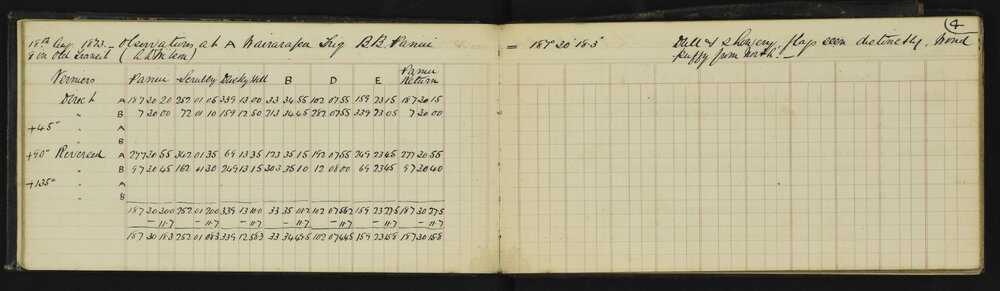 4
18th Aug. 1873. Observations at A Wairarapa Trig BB Pamui = 187° 30' 18.3" Dull & showery, flags seen distinctly. Wind
8 in Old Transit puffy from north.
Verniers Pamui Scrubby Dusky Hill B D E Pamui Return
Direct A 187 30 20 252 01 05 339 13 00 33 34 55 102 07 55 159 23 15 187 30 15
" B 7 30 00 72 01 10 159 12 50 213 34 45 282 07 55 339 23 05 7 30 00
+45° " A
" B
+90° Reversed A 277 30 55 342 01 35 69 13 35 123 35 15 192 07 55 249 23 45 277 30 55
" B 97 30 45 162 01 30 249 13 15 303 35 10 12 08 00 69 23 45 97 30 40
+135° " A
" B
187 30 30.0 252 01 20.0 339 13 10.0 33 35 01.2 102 07 56.2 159 23 27.5 187 30 27.5
- 11.7 - 11.7 - 11.7 - 11.7 - 11.7 - 11.7 - 11.7
187 30 18.3 252 01 08.3 339 12 58.3 33 34 49.5 102 07 44.5 159 23 15.8 187 30 15.8